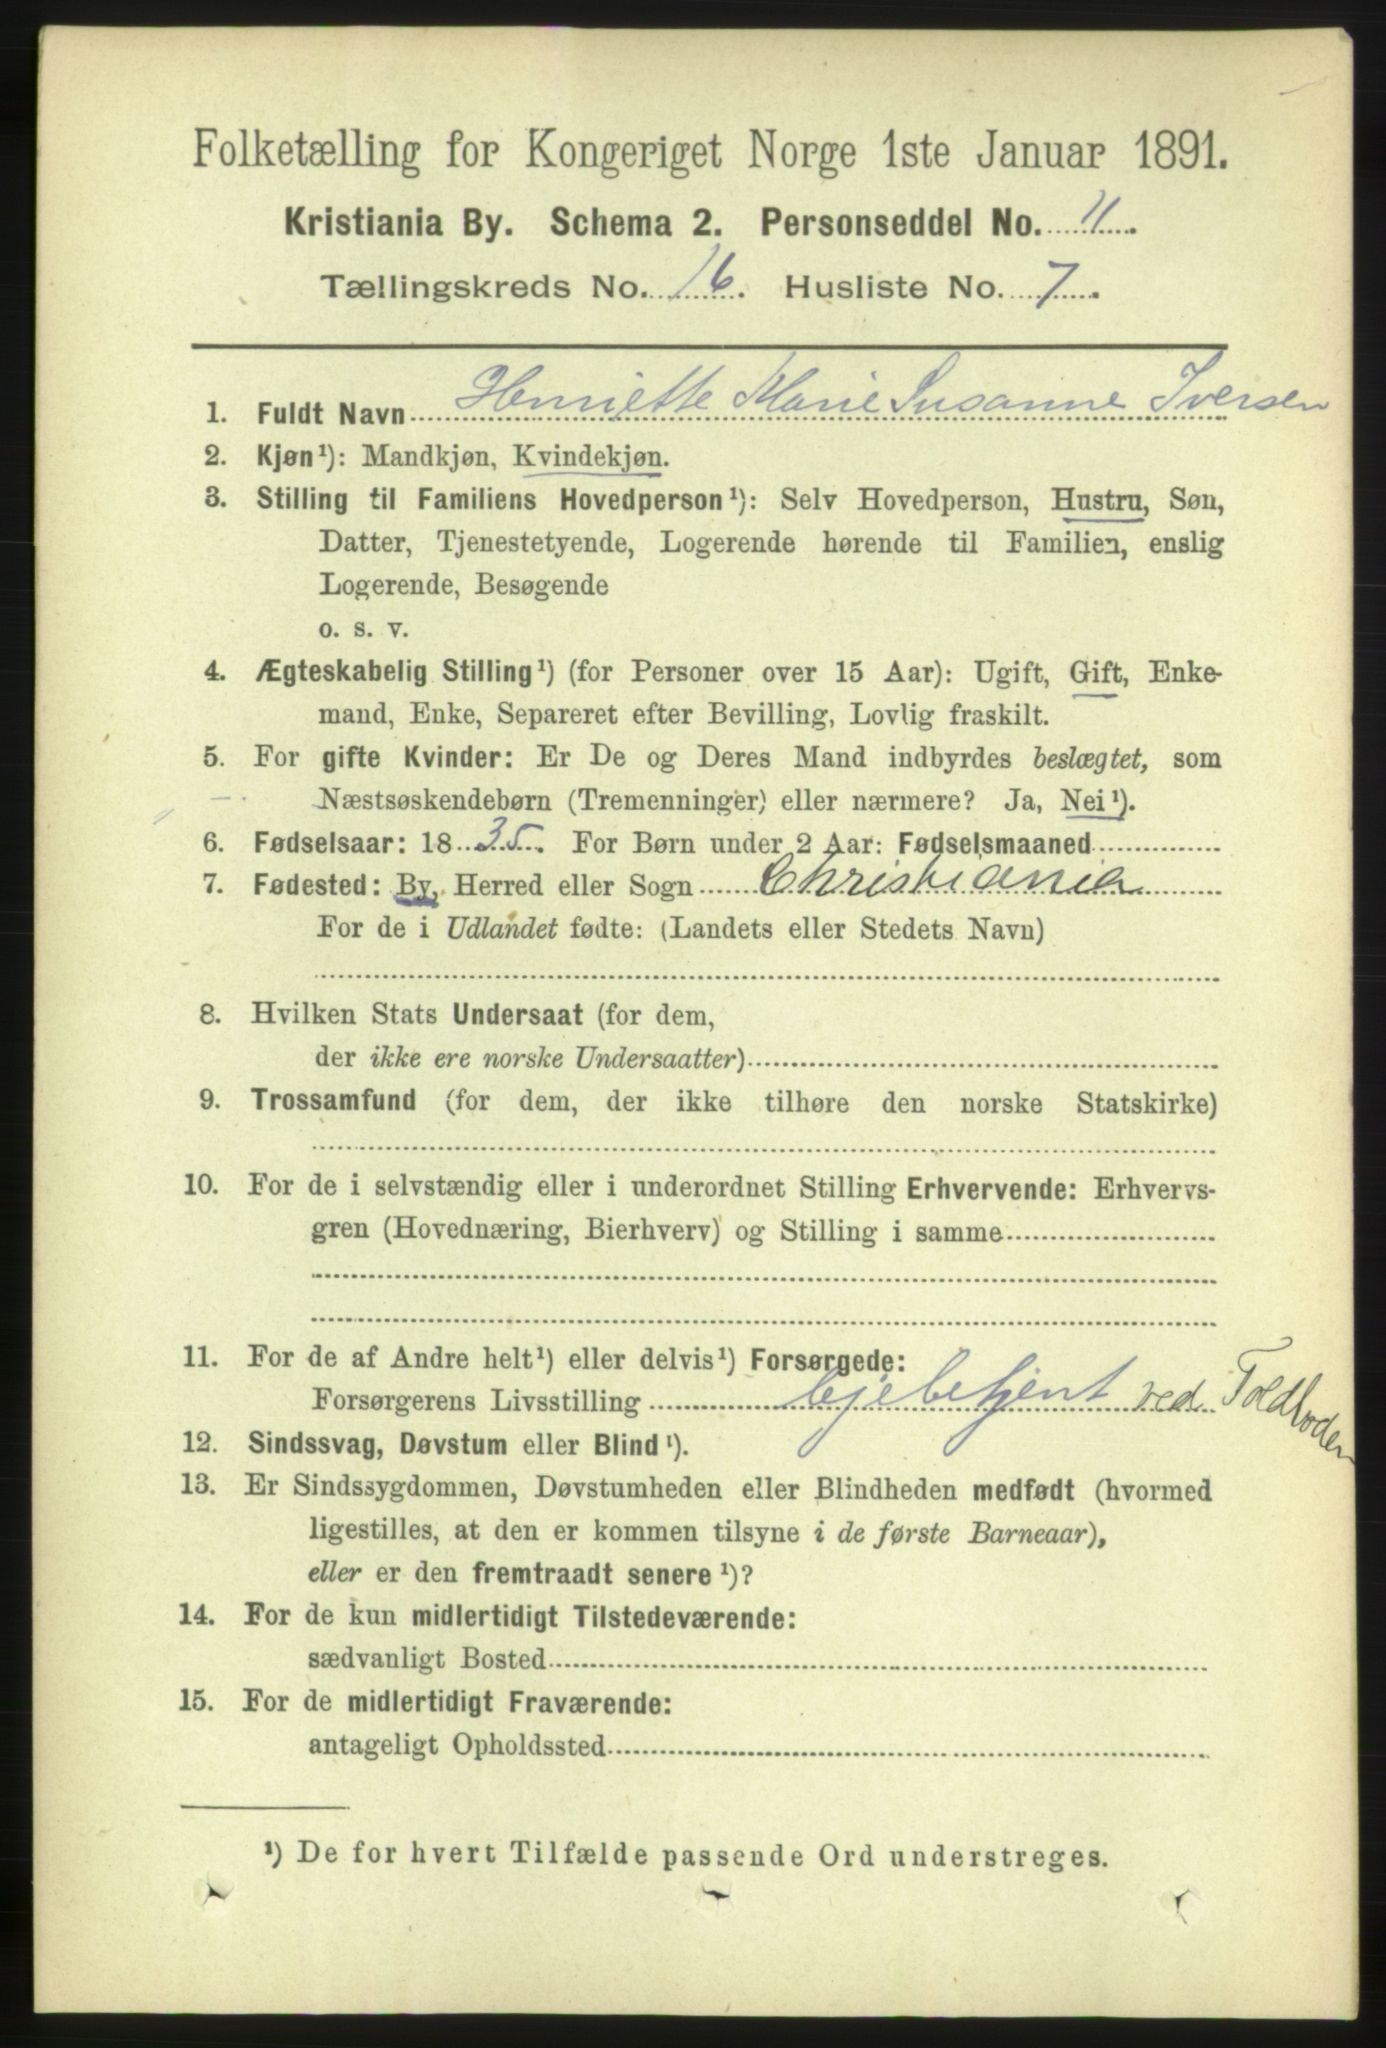 Folketælling for Kongeriget Norge 1ste Januar 1891.
Kristiania By. Schema 2. Personseddel No. 11.
Tællingskreds No. 16. Husliste No. 7.
1. Fuldt Navn Henriette Marie Susanne Iversen
2. Kjøn¹): Mandkjøn, Kvindekjøn.
3. Stilling til Familiens Hovedperson¹): Selv Hovedperson, Hustru, Søn,
Datter, Tjenestetyende, Logerende hørende til Familien, enslig
Logerende, Besøgende
o. s. v.
4. Ægteskabelig Stilling¹) (for Personer over 15 Aar): Ugift, Gift, Enke-
mand, Enke, Separeret efter Bevilling, Lovlig fraskilt.
5. For gifte Kvinder: Er De og Deres Mand indbyrdes beslægtet, som
Næstsøskendebørn (Tremenninger) eller nærmere? Ja, Nei¹).
6. Fødselsaar: 1835. For Børn under 2 Aar: Fødselsmaaned
7. Fødested: By, Herred eller Sogn Christiania
For de i Udlandet fødte: (Landets eller Stedets Navn)
8. Hvilken Stats Undersaat (for dem,
der ikke ere norske Undersaatter)
9. Trossamfund (for dem, der ikke tilhøre den norske Statskirke)
10. For de i selvstændig eller i underordnet Stilling Erhvervende: Erhvervs-
gren (Hovednæring, Bierhverv) og Stilling i samme
11. For de af Andre helt¹) eller delvis¹) Forsørgede:
Forsørgerens Livsstilling ved Toldboden
12. Sindssvag, Døvstum eller Blind¹).
13. Er Sindssygdommen, Døvstumheden eller Blindheden medfødt (hvormed
ligestilles, at den er kommen tilsyne i de første Barneaar),
eller er den fremtraadt senere¹)?
14. For de kun midlertidigt Tilstedeværende:
sædvanligt Bosted
15. For de midlertidigt Fraværende:
antageligt Opholdssted
¹) De for hvert Tilfælde passende Ord understreges.